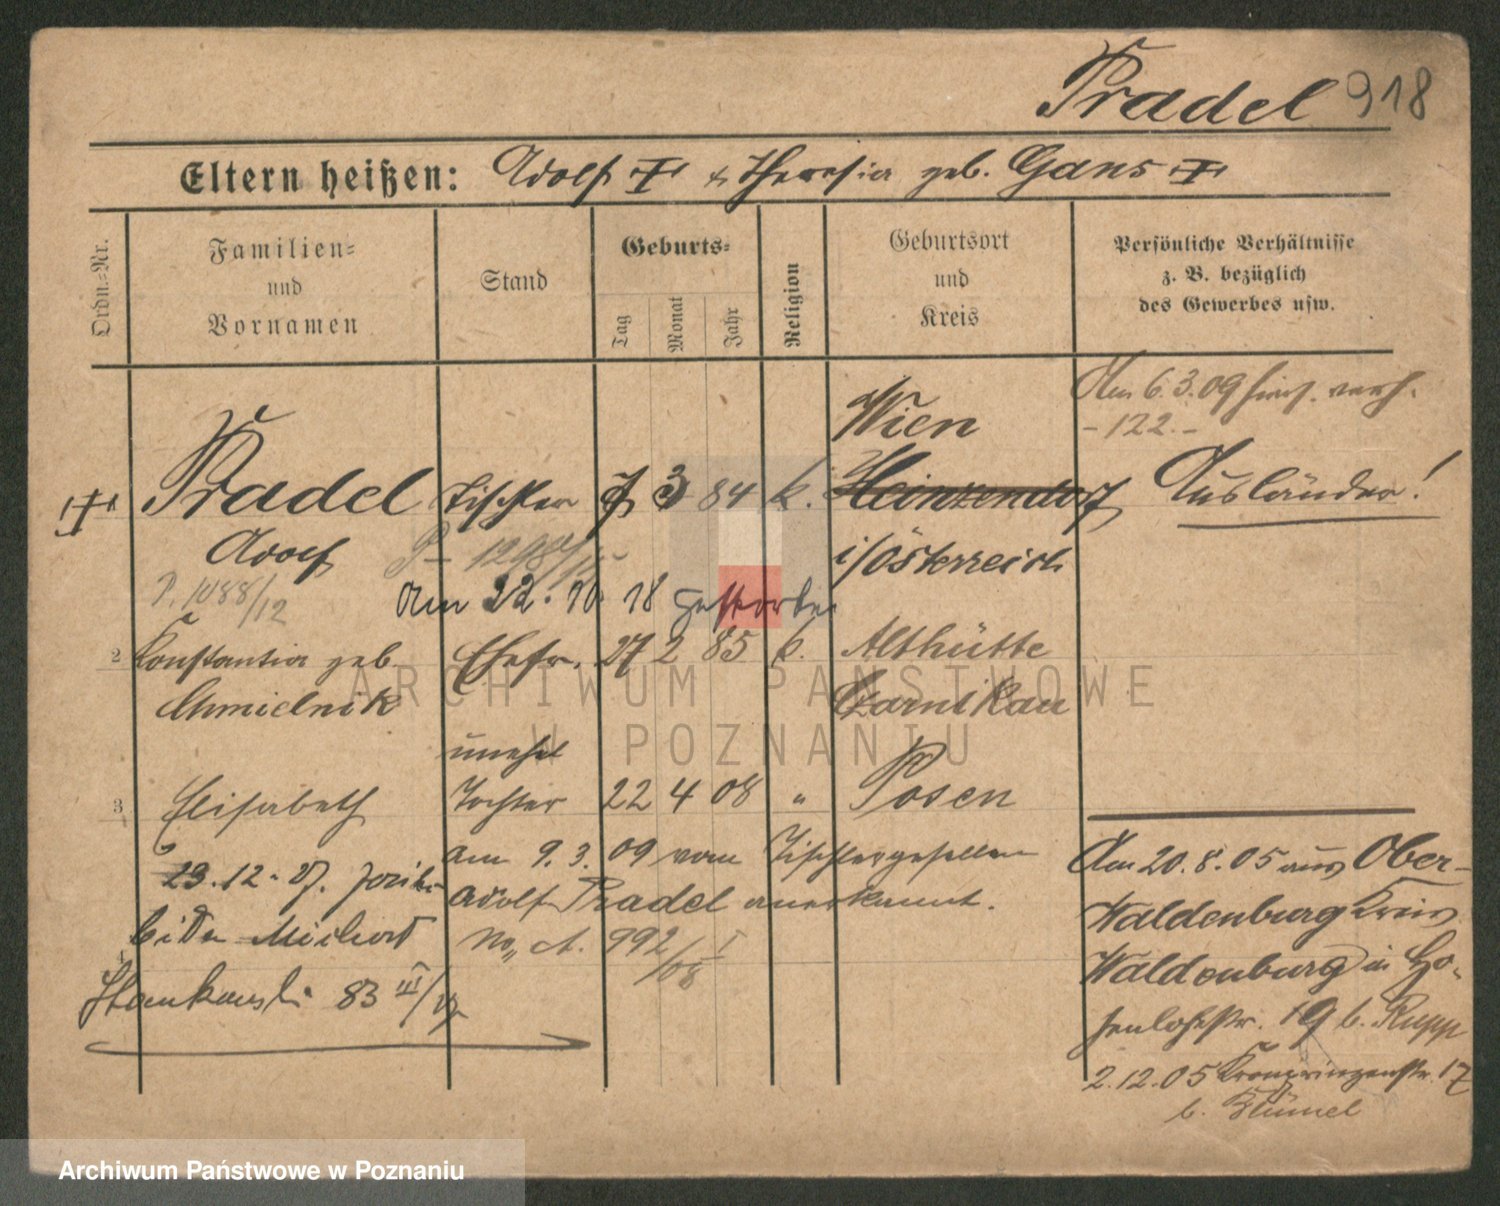 Pradel 918
Eltern heißen: Adolf † & Theresia geb. Gans †
Ordn.-Nr.
Familien-
und
Vornamen
Stand
Geburts-
Tag
Monat
Jahr
Religion
Geburtsort
und
Kreis
Persönliche Verhältnisse
z. B. bezüglich
des Gewerbes usw.
Am 6.3.09 verh.
-122.-
Wien
† Pradel Tischler 3 84 k. Heinzendorf Ausländer!
Adolf i/Österreich
P. 1088/12
Am 22. 10. 18 gestorben
2 Konstantia geb. Ehefr. 27 2 85 k. Althütte
Chmielnik Czarnikau
unehel
3 Elisabeth Tochter 22 4 08 " Posen
am 9. 3. 09 vom Tischlergesellen
Adolf Pradel anerkannt.
No. A. 992/08 I
23.12.
4
83 III
Am 20. 8. 05 aus Ober-
Waldenburg Kreis
Waldenburg in Ho-
henlohestr. 19 b. Rupp
2.12.05 Kronprinzenstr. 17
b. Blümel
ARCHIWUM PAŃSTWOWE
W POZNANIU
Archiwum Państwowe w Poznaniu